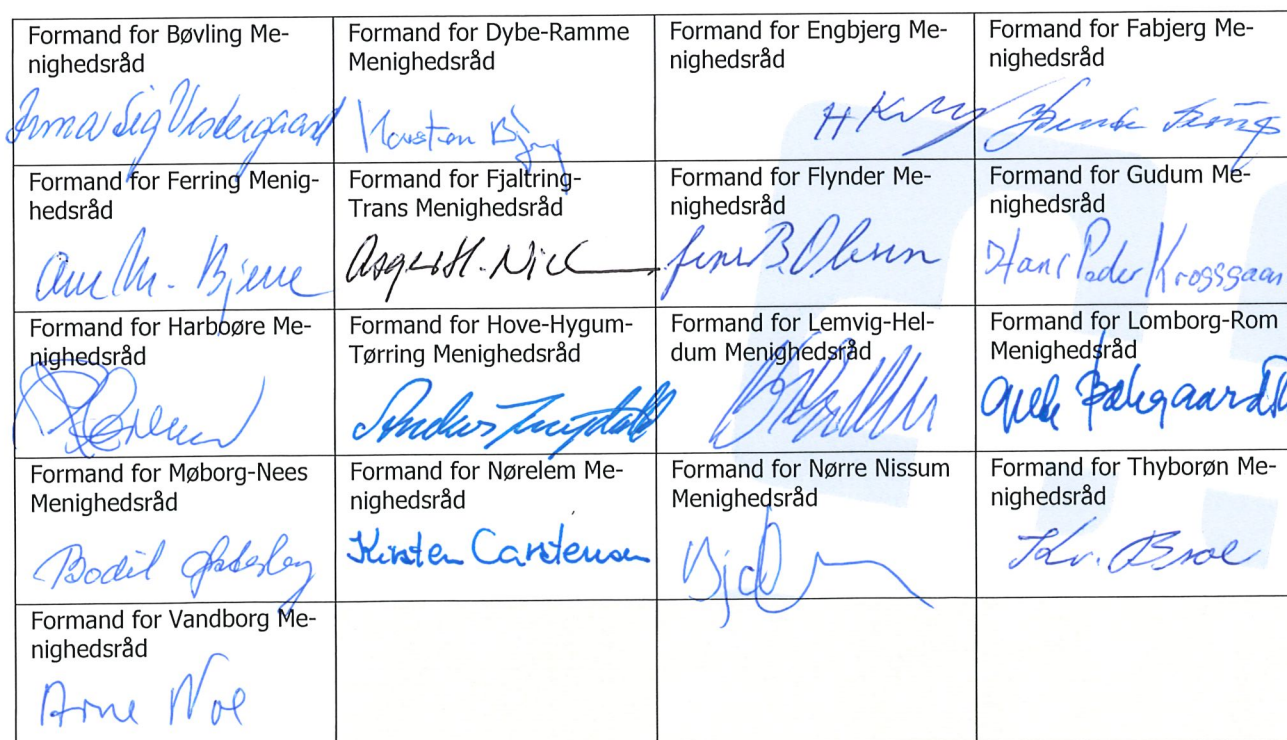 Formand for Bøvling Me-
nighedsråd
Irma Sig Vestergaard
Formand for Dybe-Ramme
Menighedsråd
Karsten
Formand for Engbjerg Me-
nighedsråd
Formand for Fabjerg Me-
nighedsråd
Formand for Ferring Menig-
hedsråd
Ane M. Bjerre
Formand for Fjaltring-
Trans Menighedsråd
Asger H. Nic
Formand for Flynder Me-
nighedsråd
Jens B. Olesen
Formand for Gudum Me-
nighedsråd
Hans Peder Krossgaar
Formand for Harboøre Me-
nighedsråd
Formand for Hove-Hygum-
Tørring Menighedsråd
Anders
Formand for Lemvig-Hel-
dum Menighedsråd
Formand for Lomborg-Rom
Menighedsråd
Formand for Møborg-Nees
Menighedsråd
Bodil
Formand for Nørelem Me-
nighedsråd
Kirsten Carstensen
Formand for Nørre Nissum
Menighedsråd
Formand for Thyborøn Me-
nighedsråd
Kr. Broe
Formand for Vandborg Me-
nighedsråd
Arne Noe